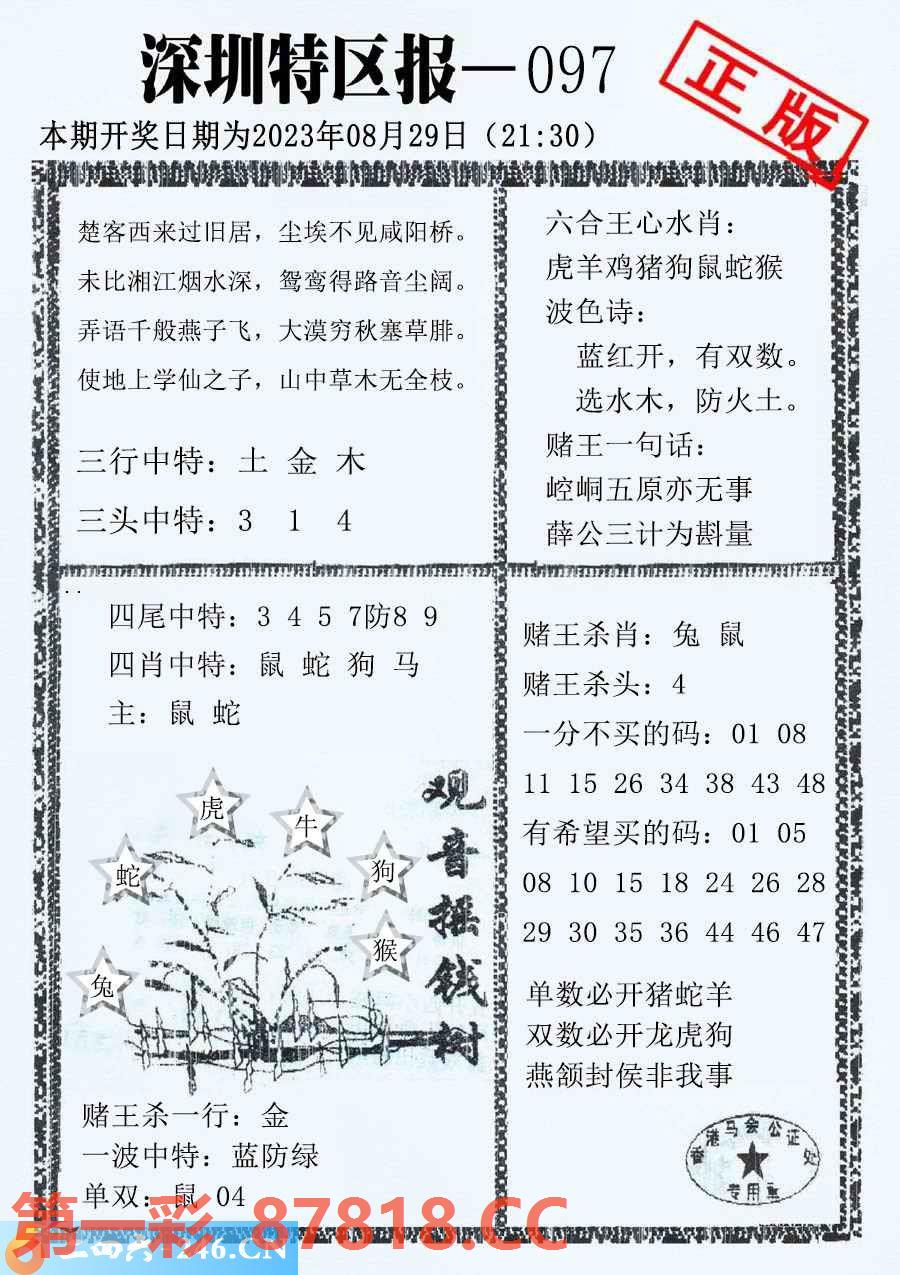 深圳特区报—097
正版
本期开奖日期为2023年08月29日（21:30）
楚客西来过旧居，尘埃不见咸阳桥。
未比湘江烟水深，鸳鸾得路音尘阔。
弄语千般燕子飞，大漠穷秋塞草腓。
使地上学仙之子，山中草木无全枝。
三行中特：土 金 木
三头中特：3 1 4
六合王心水肖：
虎羊鸡猪狗鼠蛇猴
波色诗：
蓝红开，有双数。
选水木，防火土。
赌王一句话：
崆峒五原亦无事
薛公三计为斟量
四尾中特：3 4 5 7防8 9
四肖中特：鼠 蛇 狗 马
主：鼠 蛇
虎
牛
蛇
狗
猴
兔
观音摇钱树
赌王杀一行：金
一波中特：蓝防绿
单双：鼠 04
赌王杀肖：兔 鼠
赌王杀头：4
一分不买的码：01 08
11 15 26 34 38 43 48
有希望买的码：01 05
08 10 15 18 24 26 28
29 30 35 36 44 46 47
单数必开猪蛇羊
双数必开龙虎狗
燕颔封侯非我事
香港马会公证处
专用章
第一彩 87818.CC
246.CN